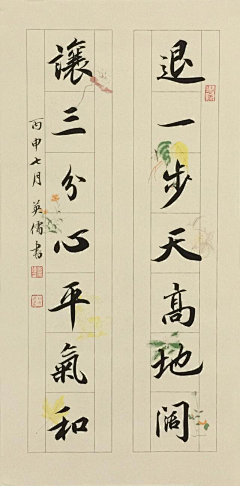 退一步天高地阔
讓三分心平氣和
丙申七月英倩書